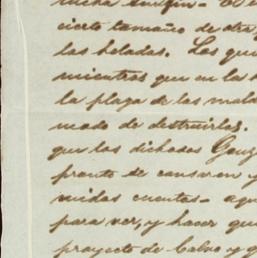 cierto tamaño de otra
las heladas. Los que
mientras que en la
la plaza de las mald
modo de destruirlas.
que los dichados Gonz
pronto se cansven y
midas cuentas - aqu
para ver, y hacer que
proyecto de Calvo y q